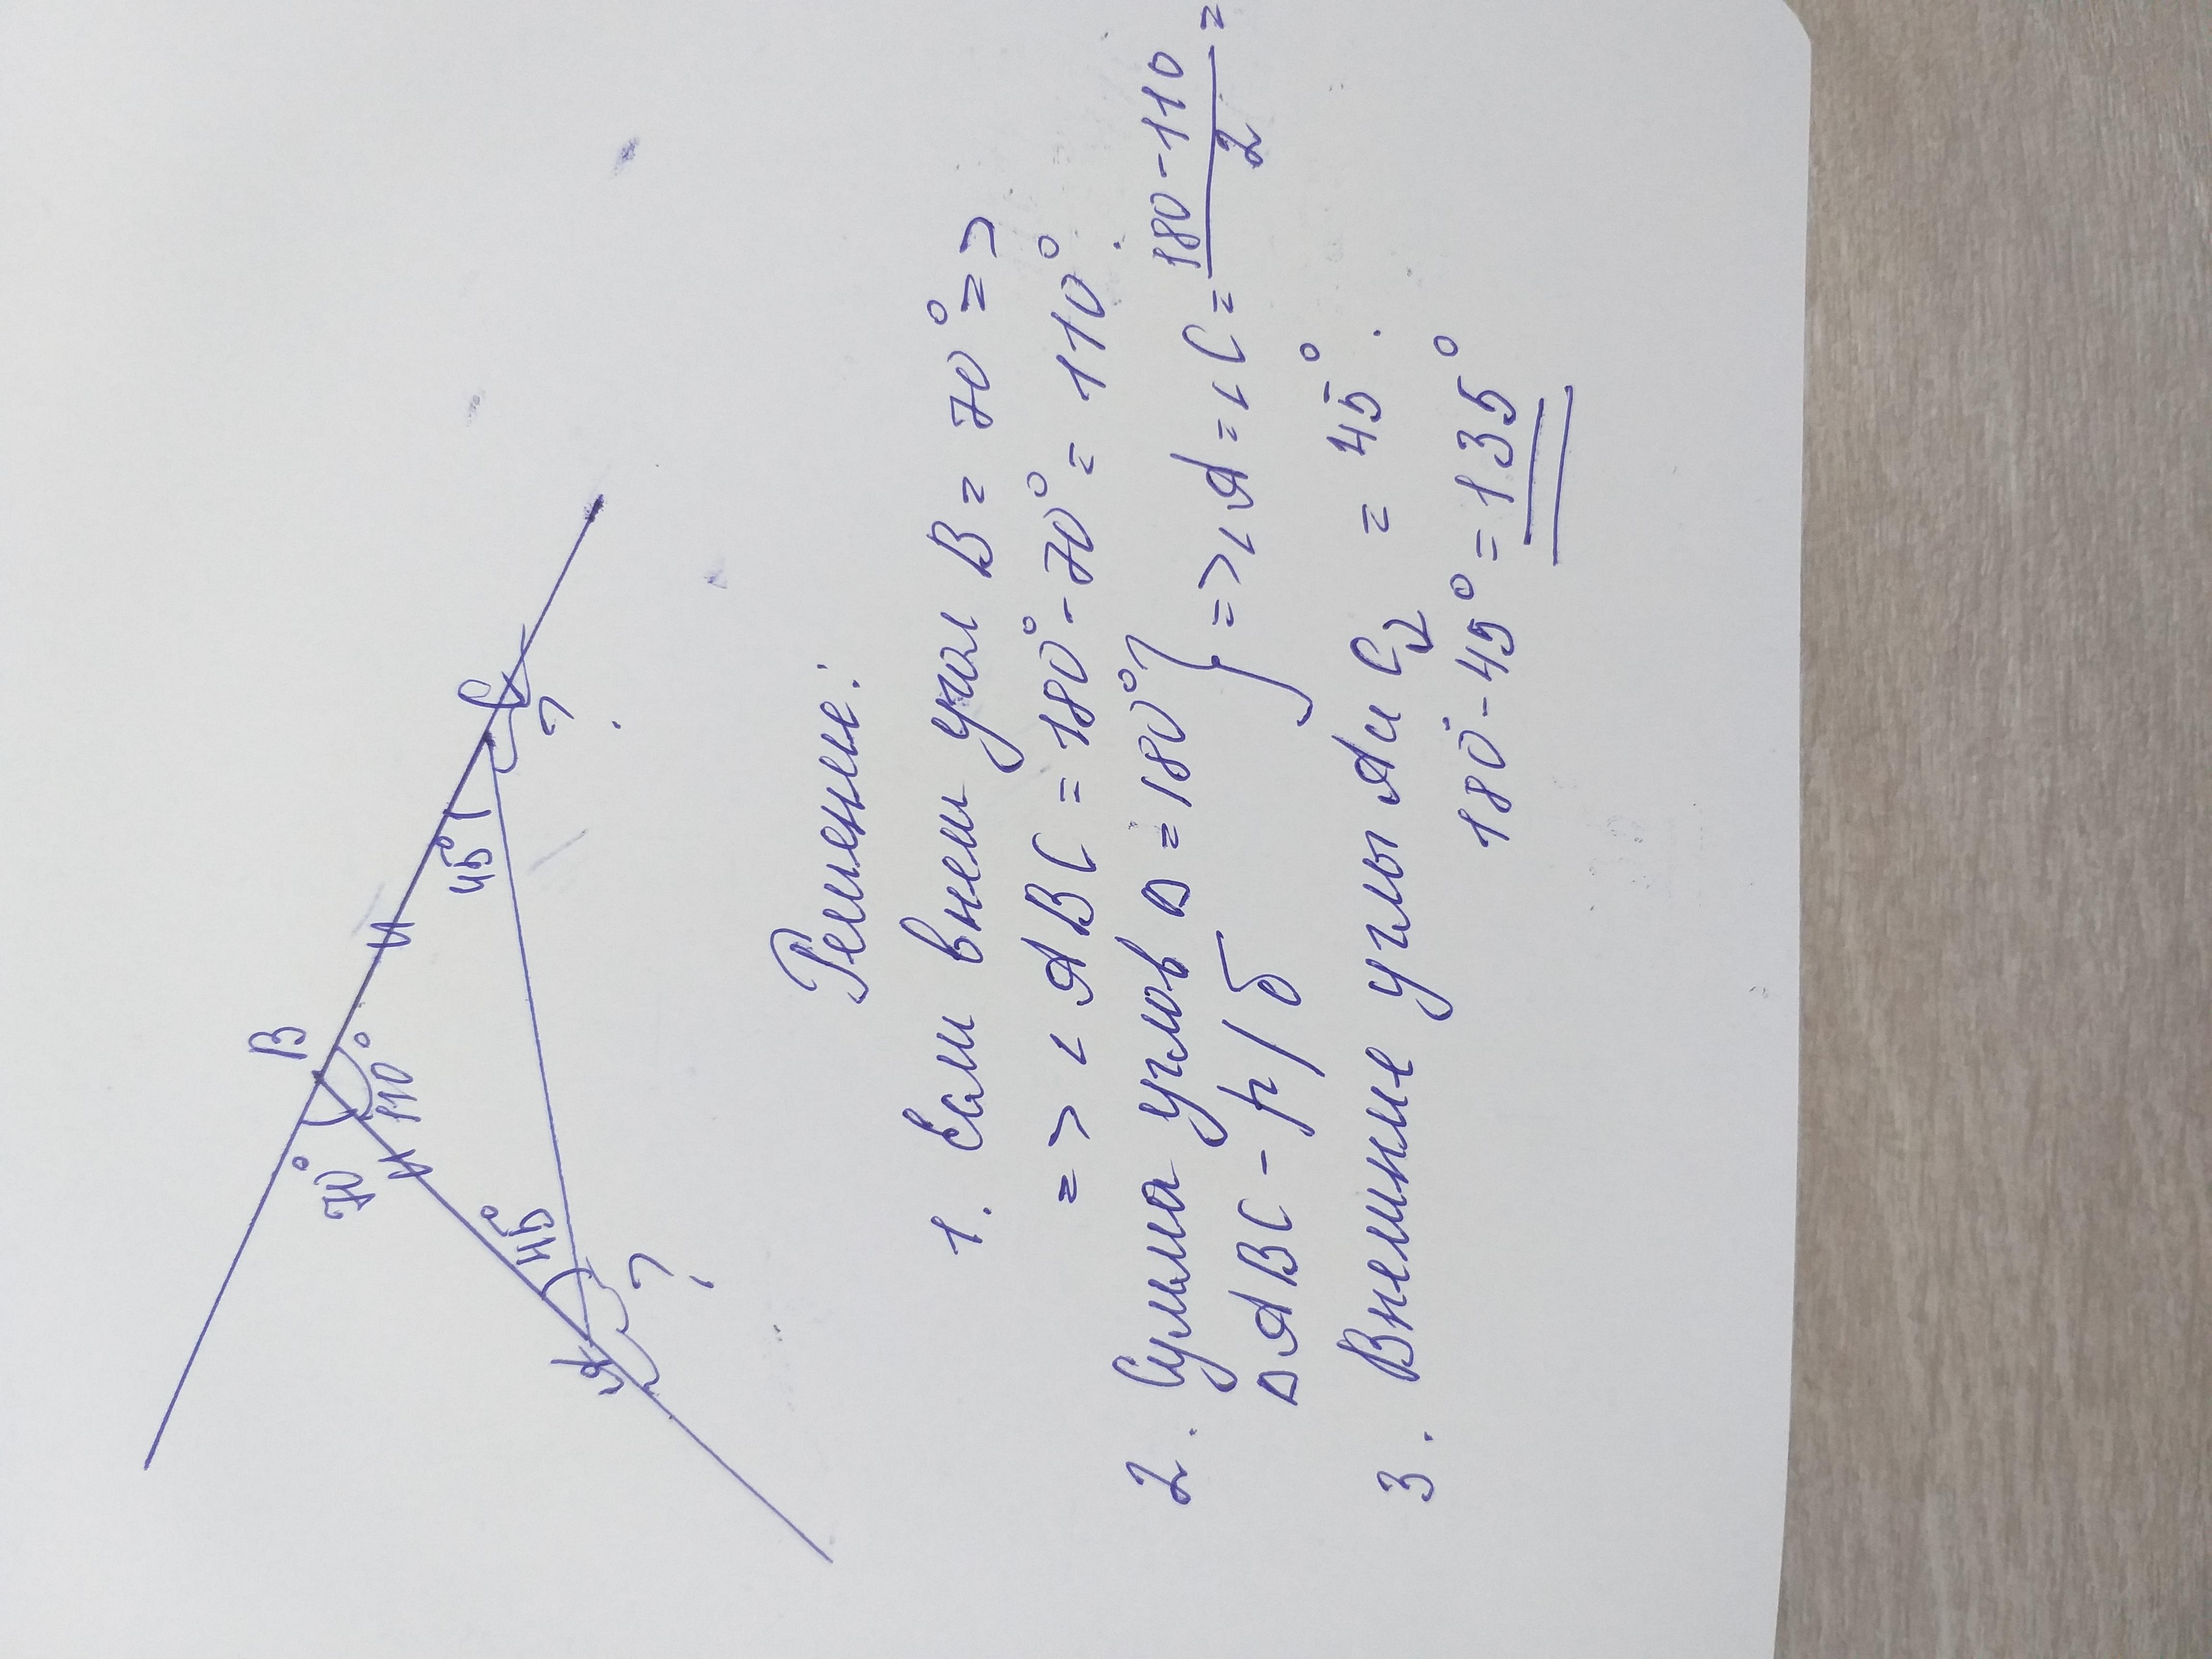 B
70°
110°
45°
C
?
45°
A
?
Решение:
1. Если внеш угол B = 70° =>
=> < ABC = 180° - 70° = 110°.
2. Сумма углов Δ = 180° } => < A = < C = 180 - 110 / 2 =
Δ ABC - р/б
= 45°.
3. Внешние углы A и C =
180° - 45° = 135°